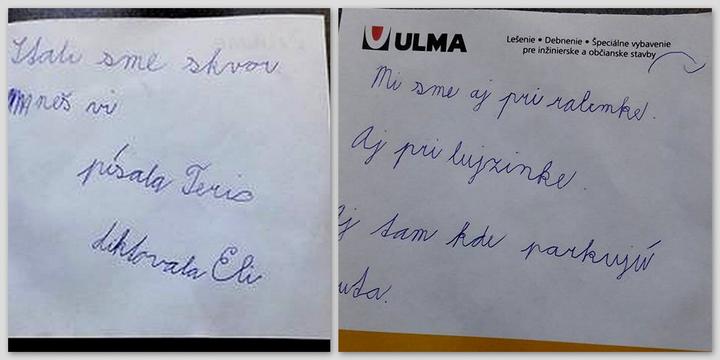 sme skvor
neš vi
písala Teris
diktovala Eli
ULMA
Lešenie • Debnenie • Špeciálne vybavenie
pre inžinierske a občianske stavby
Mi sme aj pri ralemke.
Aj pri lujzinke.
j tam kde parkujú
uta.